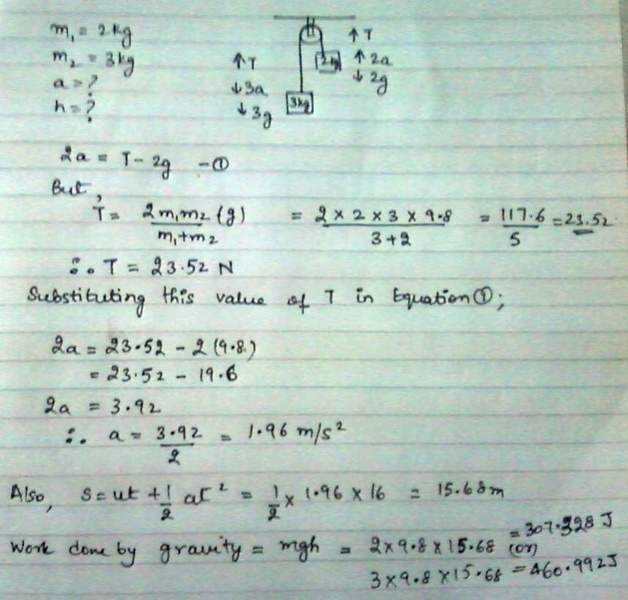 m₁ = 2kg
m₂ = 3kg
a = ?
h = ?
↑T
↓3a
↓3g
3kg
2kg
↑T
↑2a
↓2g
2a = T - 2g -①
But,
T = 2m₁m₂(g) / m₁+m₂ = 2 × 2 × 3 × 9.8 / 3+2 = 117.6 / 5 = 23.52
∴ T = 23.52 N
Substituting this value of T in Equation ①;
2a = 23.52 - 2(9.8)
= 23.52 - 19.6
2a = 3.92
∴ a = 3.92 / 2 = 1.96 m/s²
Also, S = ut + 1/2 at² = 1/2 × 1.96 × 16 = 15.68m
Work done by gravity = mgh = 2 × 9.8 × 15.68 = 307.328 J
(or)
3 × 9.8 × 15.68 = 460.992J